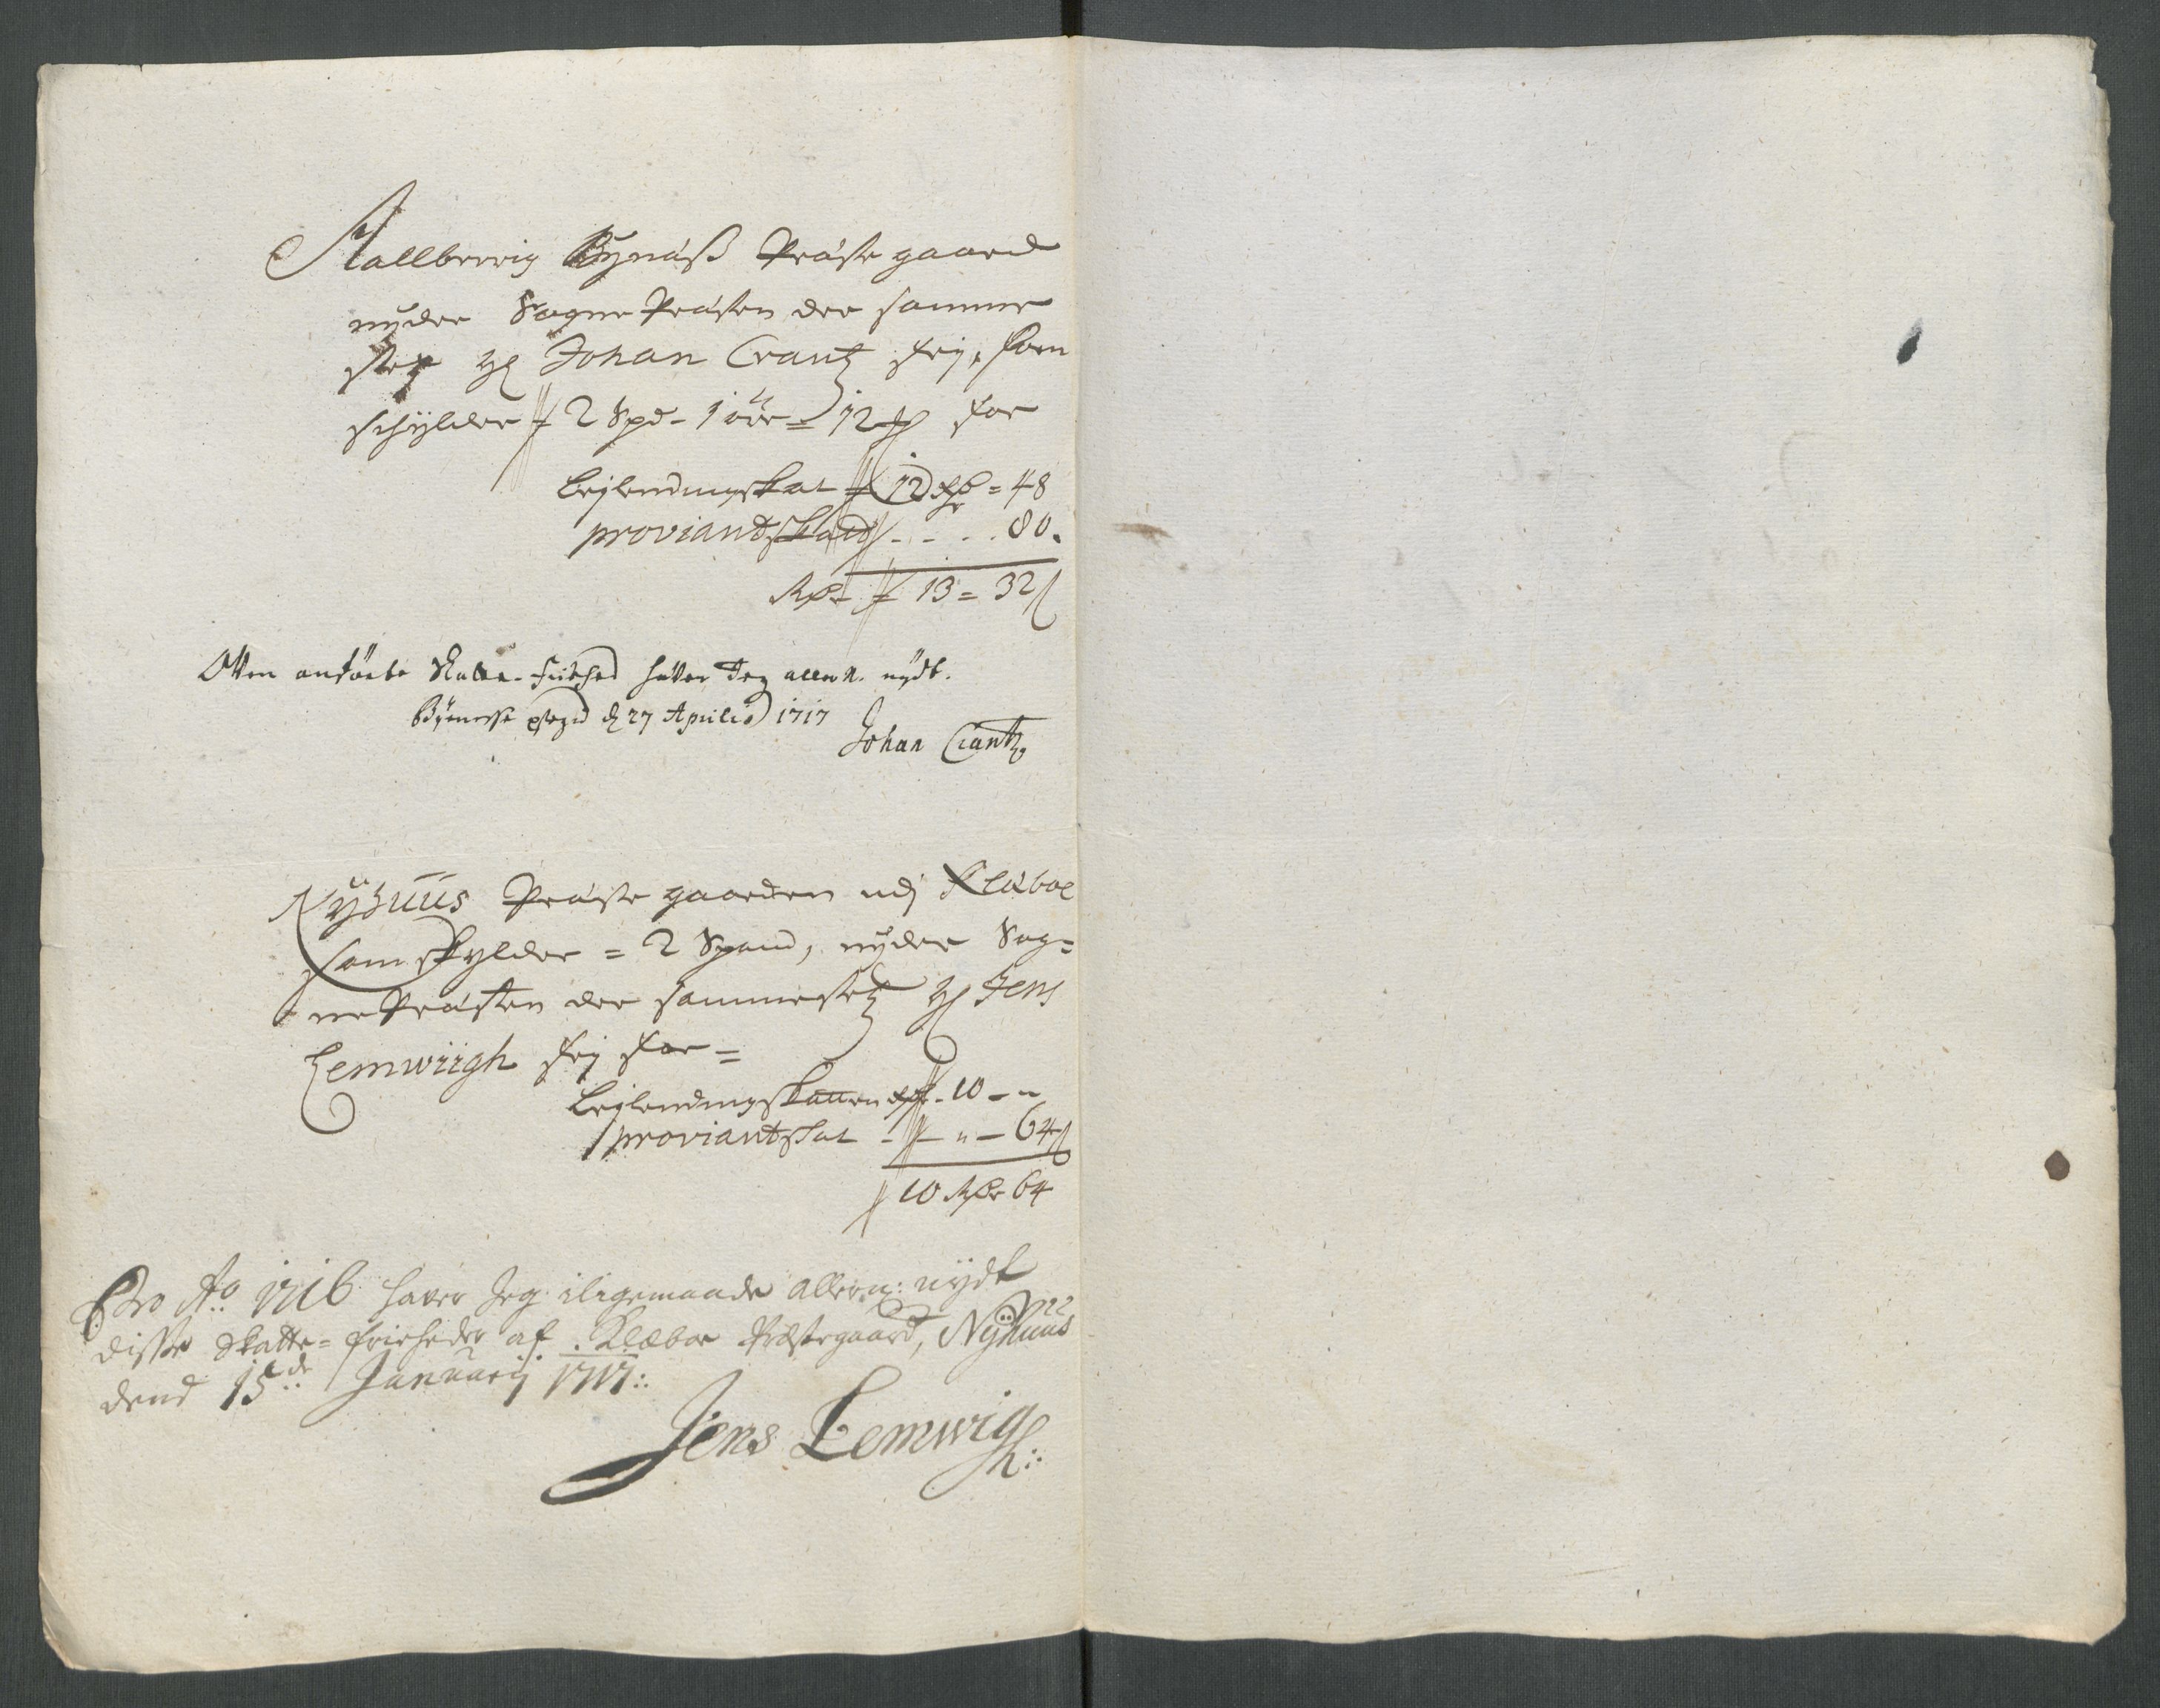 Stallbierig Bynæss Præste gaard
nyder Sogne Præsten der samme
stez hr Johan Crantz frj, som
schylder 2 Spd - 1 öre = 12 for
Leylendingskat 12 Rdr = 48
proviantskatt - - . . 80.
Rdr 13 = 32 s
Oven anförte Skatte-friehed haver Jeg allern. nydt.
Byenesse d 27 Aprilis 1717
Johan Crantz
Nyhuus Præste gaarden udj Klæboe
som skylder = 2 Spand, nyder Sog=
ne Præsten der sammestetz hr Jens
Lemwiigh frj for =
Leylendingskatten Rdr - 10 - "
proviantskat - - " - 64 s
10 Rdr 64
Pro Ao. 1716 haver Jeg iligemaade allern: nydt
disse Skatte=friheder af Klæboe Præstegaard, Nyhuus
dend 15de Januarij 1717:.
Jens Lemwigh:.